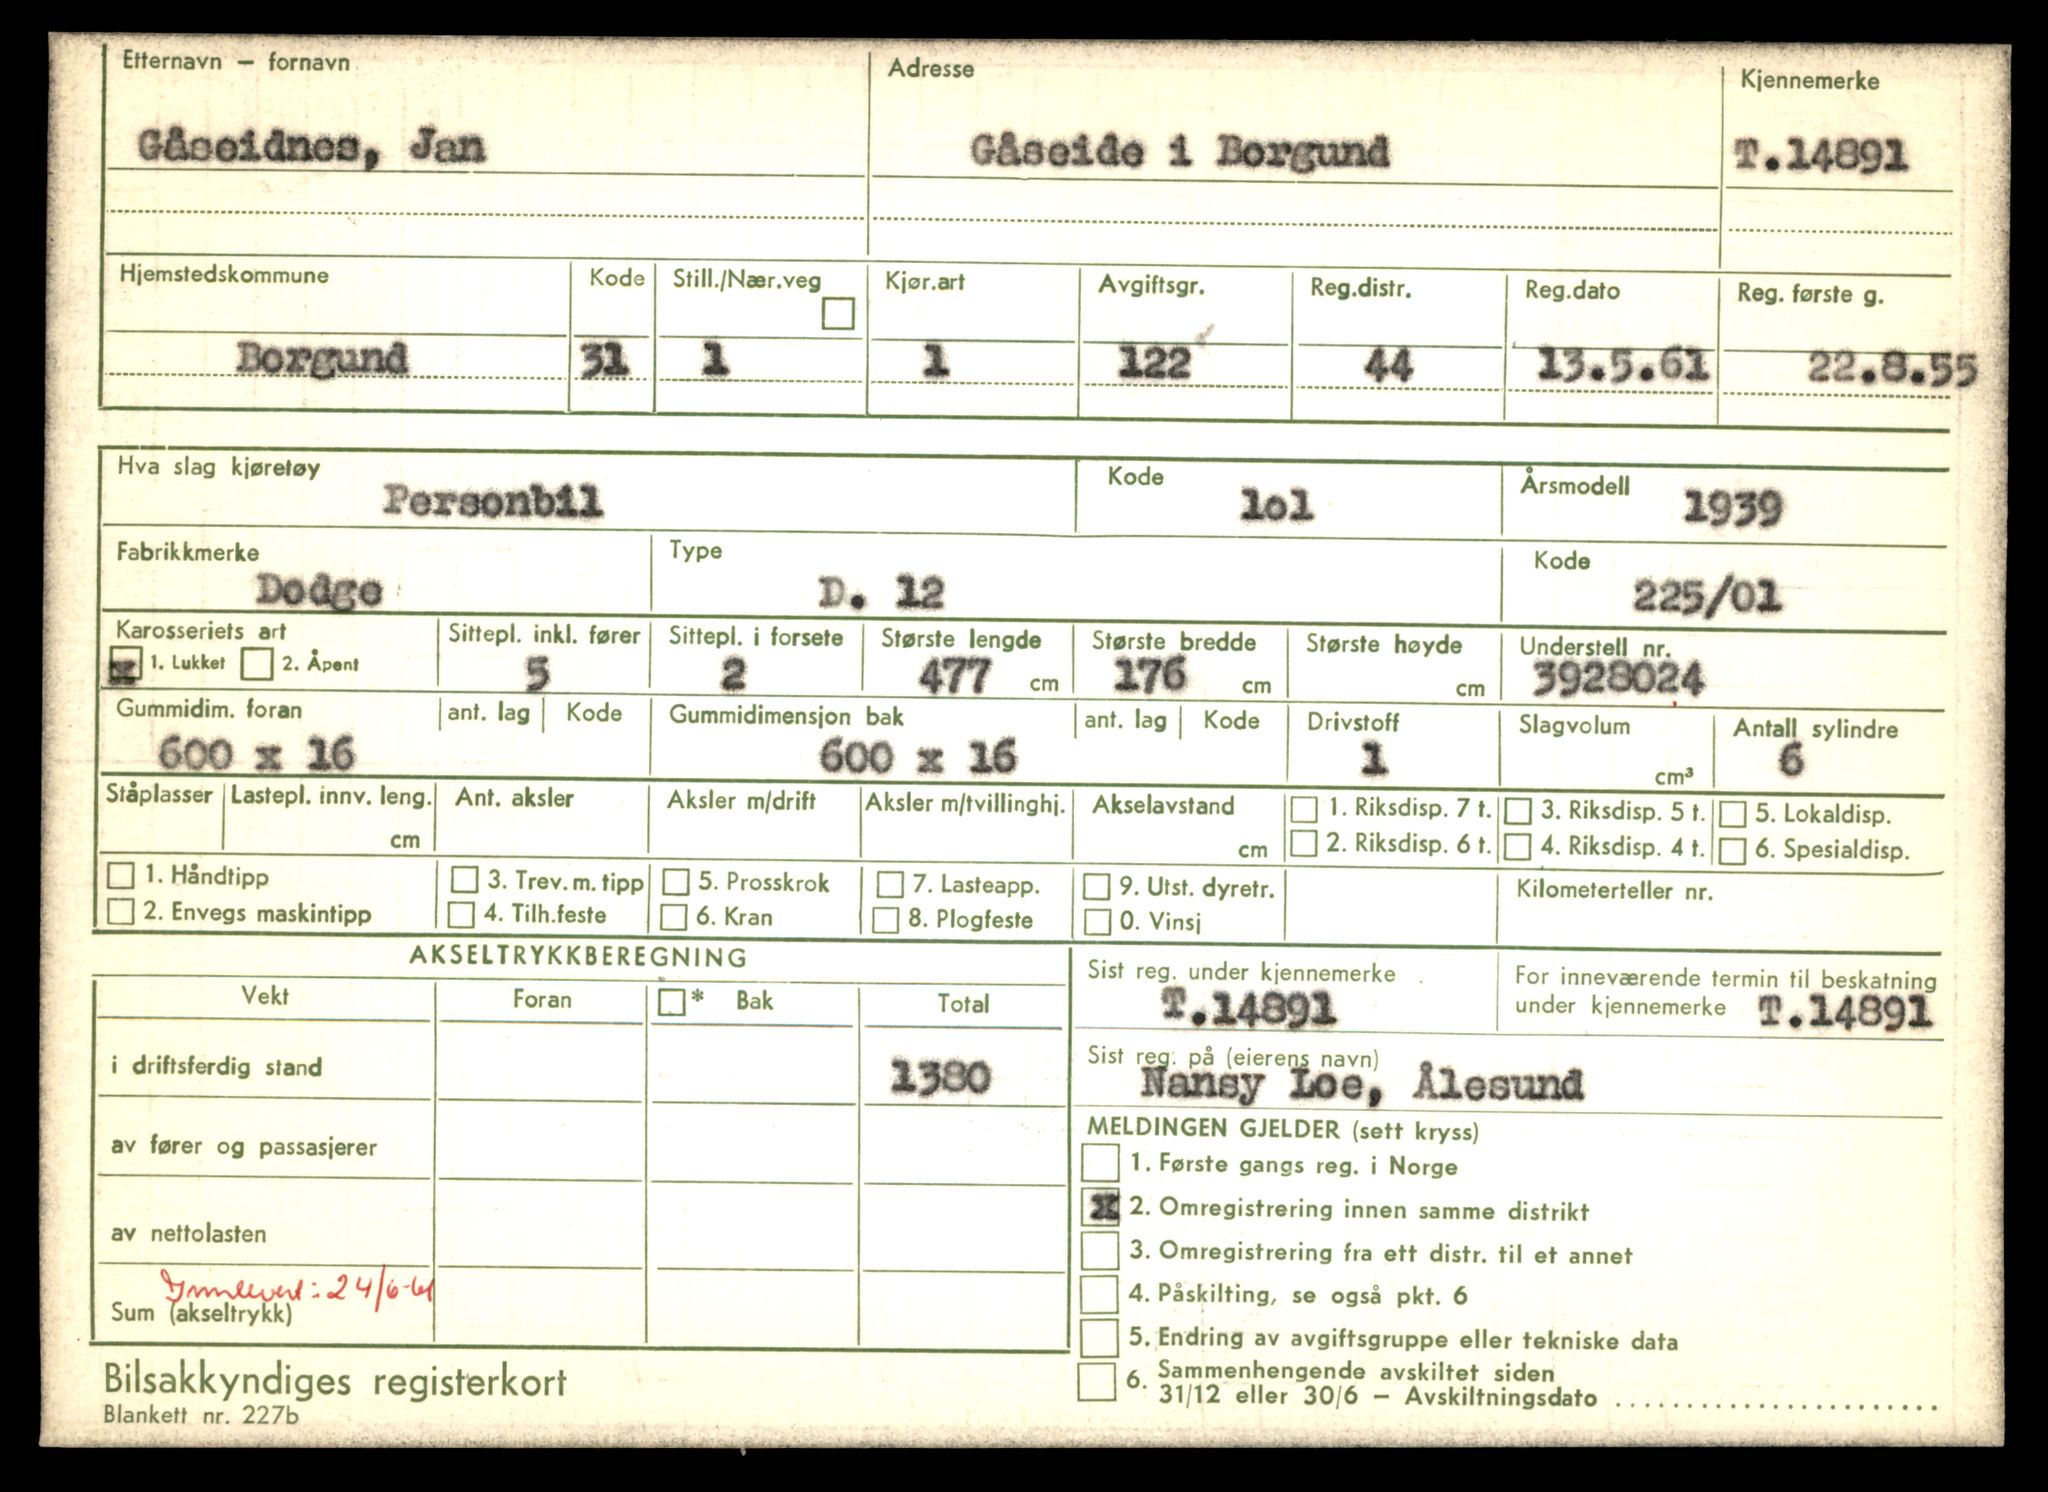 Etternavn — fornavn Adresse Kjennemerke
Gåseidnes, Jan Gåseide i Borgund T.14891
Hjemstedskommune Kode Still./Nær.veg Kjør.art Avgiftsgr. Reg.distr. Reg.dato Reg. første g.
Borgund 31 1 1 122 44 13.5.61 22.8.55
Hva slag kjøretøy Kode Årsmodell
Personbil lol 1939
Fabrikkmerke Type Kode
Dodge D. 12 225/01
Karosseriets art Sittepl. inkl. fører Sittepl. i forsete Største lengde Største bredde Største høyde Understell nr.
x 1. Lukket 2. Åpent 5 2 477 cm 176 cm cm 3928024
Gummidim. foran ant. lag Kode Gummidimensjon bak ant. lag Kode Drivstoff Slagvolum Antall sylindre
600 x 16 600 x 16 1 cm³ 6
Ståplasser Lastepl. innv. leng. Ant. aksler Aksler m/drift Aksler m/tvillinghj. Akselavstand 1. Riksdisp. 7 t. 3. Riksdisp. 5 t. 5. Lokaldisp.
cm cm 2. Riksdisp. 6 t. 4. Riksdisp. 4 t. 6. Spesialdisp.
1. Håndtipp 3. Trev. m. tipp 5. Prosskrok 7. Lasteapp. 9. Utst. dyretr. Kilometerteller nr.
2. Envegs maskintipp 4. Tilh.feste 6. Kran 8. Plogfeste 0. Vinsj
AKSELTRYKKBEREGNING
Vekt Foran * Bak Total
i driftsferdig stand 1380
av fører og passasjerer
av nettolasten
Innlevert: 24/6-61
Sum (akseltrykk)
Sist reg. under kjennemerke
T.14891
For inneværende termin til beskatning
under kjennemerke T.14891
Sist reg. på (eierens navn)
Nansy Loe, Ålesund
MELDINGEN GJELDER (sett kryss)
1. Første gangs reg. i Norge
x 2. Omregistrering innen samme distrikt
3. Omregistrering fra ett distr. til et annet
4. Påskilting, se også pkt. 6
5. Endring av avgiftsgruppe eller tekniske data
6. Sammenhengende avskiltet siden
31/12 eller 30/6 — Avskiltningsdato ........................
Bilsakkyndiges registerkort
Blankett nr. 227b